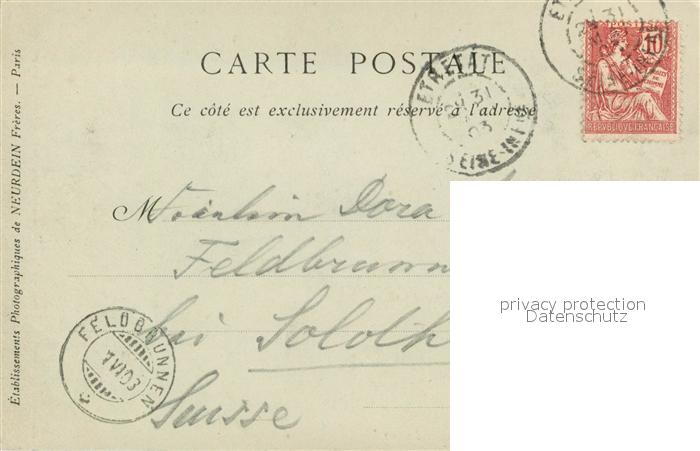 CARTE POSTALE
Ce côté est exclusivement réservé à l'adresse
ETRETAT
31
03
SEINE-INFRE
POSTES
10
REPUBLIQUE FRANÇAISE
Établissements Photographiques de NEURDEIN Frères. — Paris
Fräulein Dora
Feldbrunn
bei Soloth
Suisse
FELDBRUNNEN
1 VI 03
privacy protection
Datenschutz